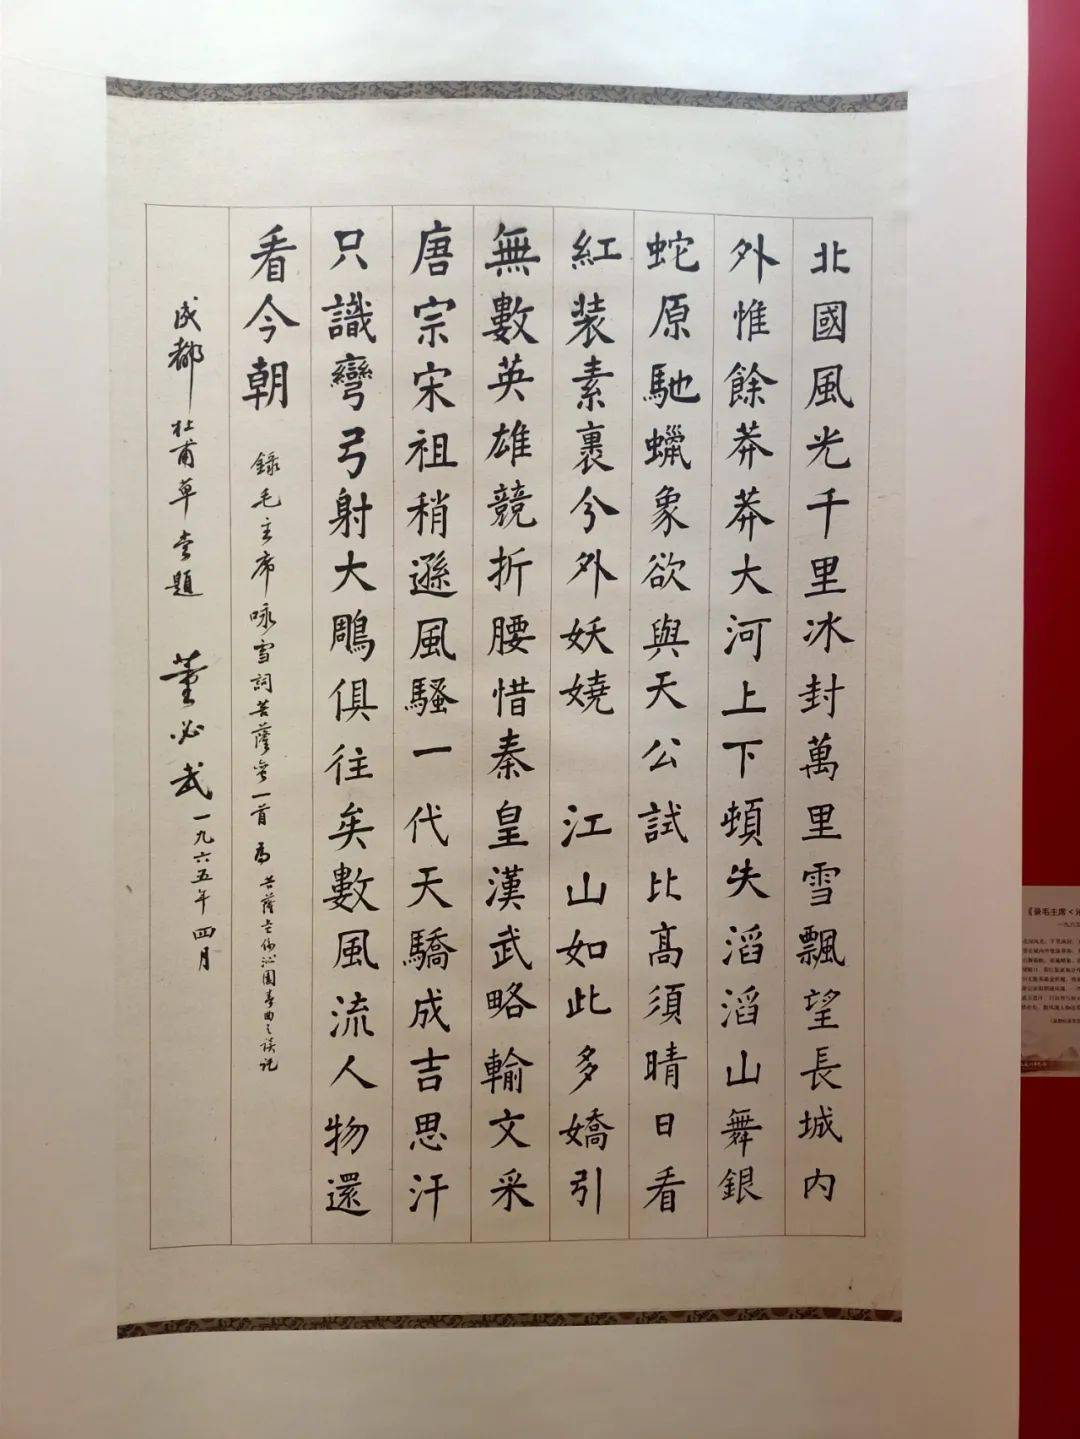 北國風光千里冰封萬里雪飄望長城内
外惟餘莽莽大河上下頓失滔滔山舞銀
蛇原馳蠟象欲與天公試比高須晴日看
紅装素裹分外妖嬈 江山如此多嬌引
無數英雄競折腰惜秦皇漢武略輸文采
唐宗宋祖稍遜風騷一代天驕成吉思汗
只識彎弓射大鵰俱往矣數風流人物還
看今朝 錄毛主席咏雪詞菩薩蠻一首 菩薩蠻係沁園春曲之誤記
成都杜甫草堂題 董必武 一九六五年四月
《录毛主席<沁